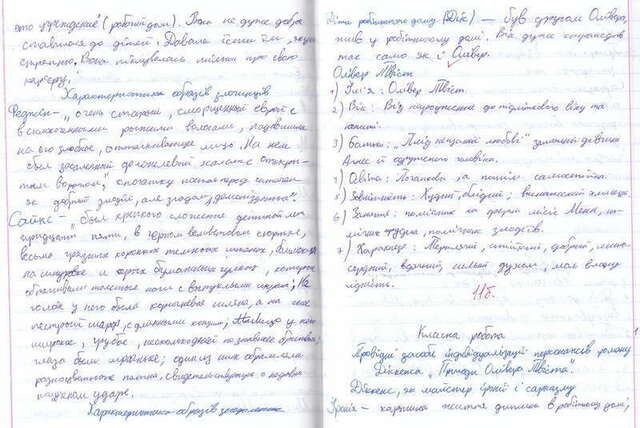 это учреждение" (рабочий дом). Вона не дуже добре
ставилася до дітей. Давала їсти їм
Вона піклувалась тільки про свою
кар'єру.
Характеристика образів злочинців
Феджін - "очень старый, сморщенный еврей с
всклокоченными рыжими волосами, падавшими
на его злобное, отталкивающее лицо. На нем
был засаленный фланелевый халат с открытым
воротом",
як добрий дядько, але згодом
Сайкс - "был крепкого сложения детина лет
тридцати пяти, в черном вельветовом сюртуке,
весьма грязных коротких темных штанах, башмаках
на шнуровке и серых бумажных чулках, которые
обтягивали толстые ноги с выпуклыми икрами; На
голове у него была коричневая шляпа, а на шее
пестрый шарф, с длинными концами; Лицо у него
широкое, грубое,
глаза были мрачные; один из них обрамляли
разноцветные пятна, свидетельствующие о недавно
полученном ударе.
Характеристика образів
Діти робітничого дому (Дік) — був другом Олівера,
жив у робітничому домі. Він дуже
так само як і Олівер.
Олівер Твіст
1) Ім'я: Олівер Твіст.
2) Вік: Від народження до підліткового віку та
3) Батьки: "Плід нещасної любові" дівчини
Агнес й одруженого чоловіка.
4) Освіта: Початкова, а потім самостійна.
5) Зовнішність: Худий, блідий;
6) Заняття: помічник на фермі місіс Мейлі, по-
мічник трунаря, помічник злодіїв.
7) Характер: Мерзлякуватий, добрий, мило-
сердний, вдячний, сильний духом, мав власну
гідність.
11б.
Класна робота
Провідні засоби індивідуалізації персонажів роману
Діккенса "Пригоди Олівера Твіста.
Діккенс, як майстер іронії і сарказму
Іронія - картина життя дитини в робітному домі,